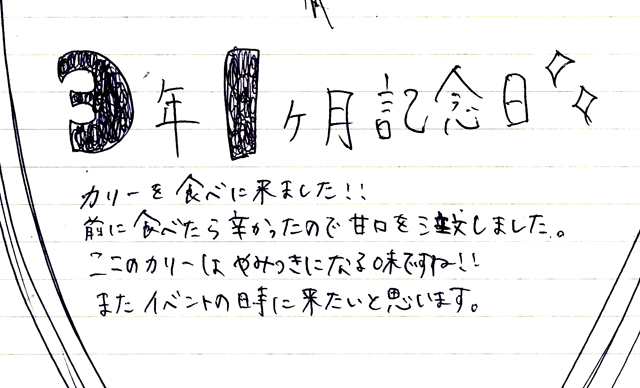 3年1ヶ月記念日
カリーを食べに来ました!!
前に食べたら辛かったので甘口を注文しました。
ここのカリーはやみつきになる味ですね!!
またイベントの時に来たいと思います。